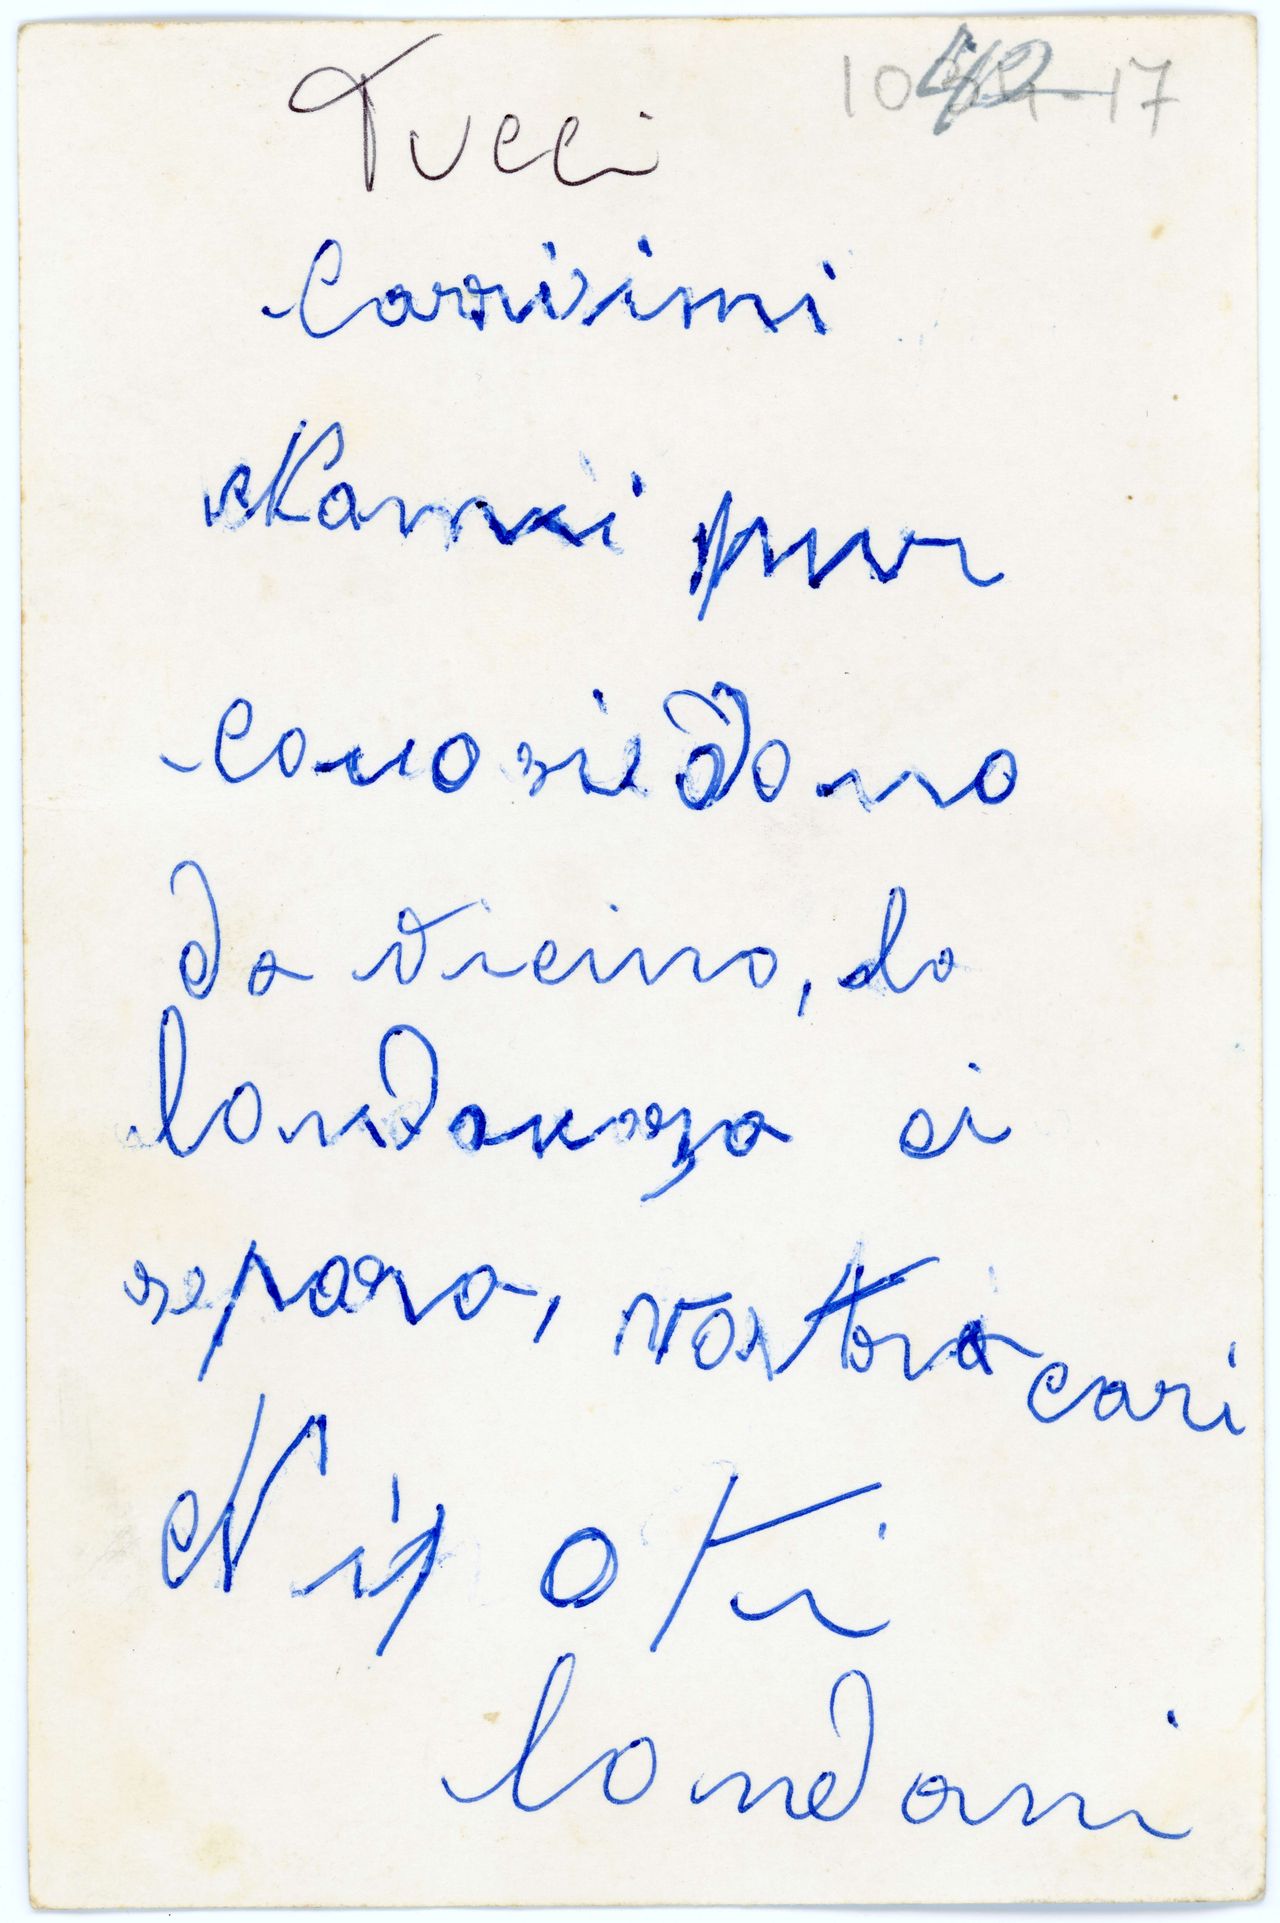 Tucci
Carrisimi
Nanni pur
conosiedono
da vicino, la
londananza ci
separa, vostri cari
Nipoti
londani